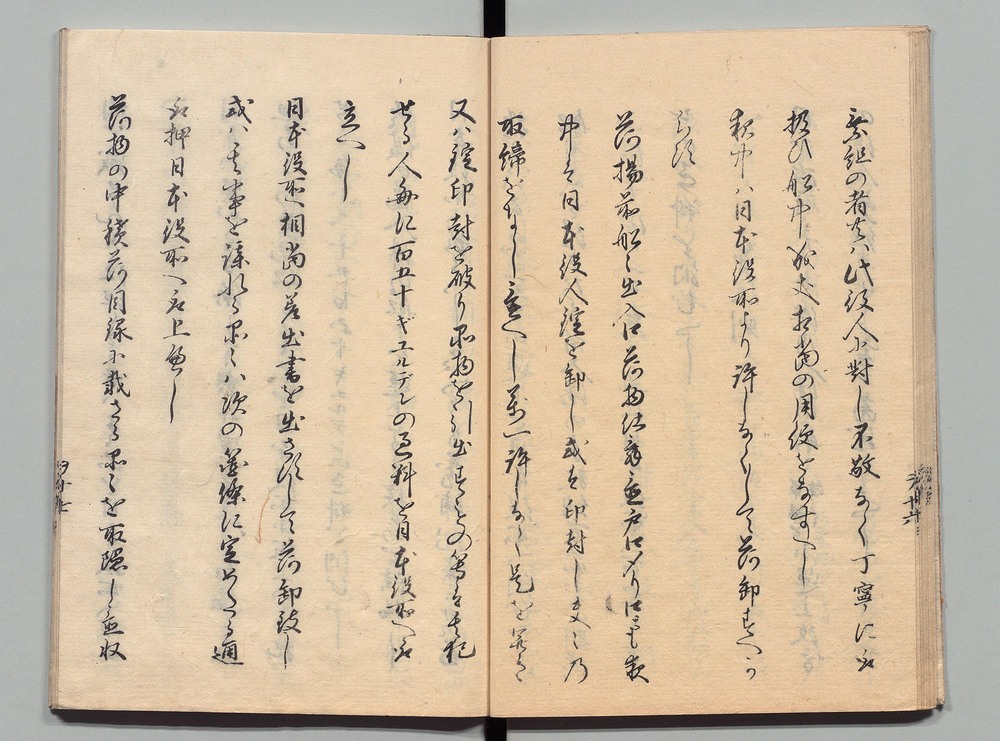 乗組の者共ハ此役人に對し不敬なく丁寧に取
扱ひ船中ニ於て丈相當の用便をなすへし
夜中ハ日本役所より許しなくして荷卸すへか
らす
荷揚前船之出入口荷物仕舞置戸口〆り口とも夜
中は日本役人錠を卸し或は印封し夫々乃
取締をなし置へし萬一許しなく是を開き
又ハ錠印封を破り品物を引出すもの等は其犯
せる人毎に百五十キユルデンの過料を日本役所へ取
立へし
日本役所へ相當の差出書を出さすして荷卸致し
或ハ其事を謀れる品々ハ次の箇條に定めたる通
取押日本役所へ取上へし
荷物の中積荷目録に載さる品々を取隠し置収